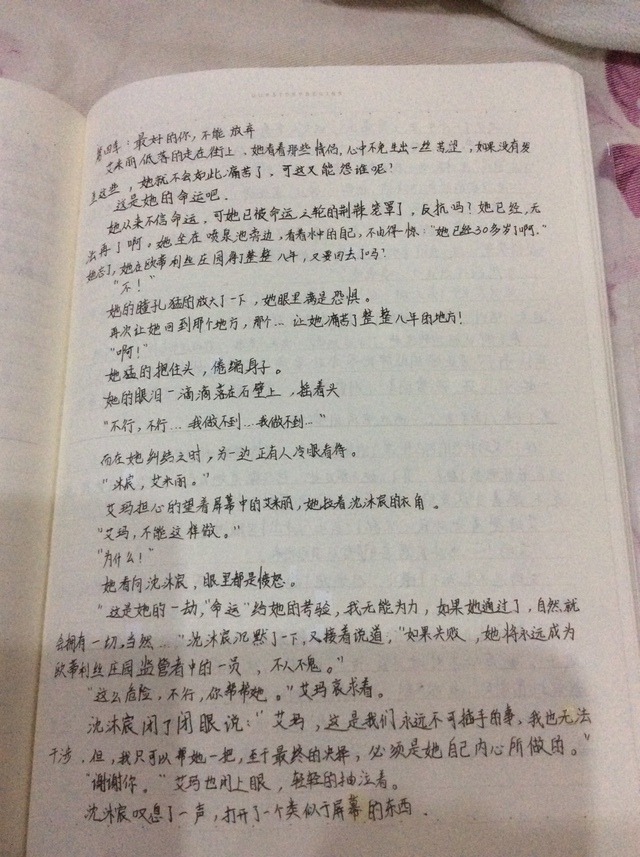 第四章:最好的你,不能放弃
艾米丽低落的走在街上,她看着那些情侣,心中不免生出一丝苦望,如果没有发
生这些,她就不会如此痛苦了,可这又能怨谁呢?
这是她的命运吧.
她从来不信命运,可她已被命运之轮的荆棘笼罩了,反抗吗?她已经,无
法再了啊。她坐在喷泉池旁边,看着水中的自己,不由得一惊:"她已经30多岁了啊."
她忘了,她在欧蒂利丝庄园有了整整八年,又要回去了吗?
"不!"
她的瞳孔猛的放大了一下,她眼里满是恐惧。
再次让她回到那个地方,那个…让她痛苦了整整八年的地方!
"啊!"
她猛的抱住头,倦缩身子。
她的眼泪一滴滴落在石壁上,摇着头
"不行,不行…我做不到…我做不到…"
而在她纠结之时,另一边正有人冷眼看待。
"沐宸,艾米丽。"
艾玛担心的望着屏幕中的艾米丽,她拉着沈沐宸的衣角.
"艾玛,不能这样做。"
"为什么!"
她看向沈沐宸,眼里都是愤怒。
"这是她的一劫,"命运"给她的考验,我无能为力,如果她通过了,自然就
会拥有一切,当然…"沈沐宸沉默了一下,又接着说道,"如果失败,她将永远成为
欧蒂利丝庄园监管者中的一员,不人不鬼。"
"这么危险,不行,你帮帮她。"艾玛哀求着。
沈沐宸闭了闭眼说:"艾玛,这是我们永远不可插手的事,我也无法
干涉.但,我只可以帮她一把,至于最终的决择,必须是她自己内心所做的。"
"谢谢你。"艾玛也闭上眼,轻轻的抽泣着。
沈沐宸叹息了一声,打开了一个类似于屏幕的东西.